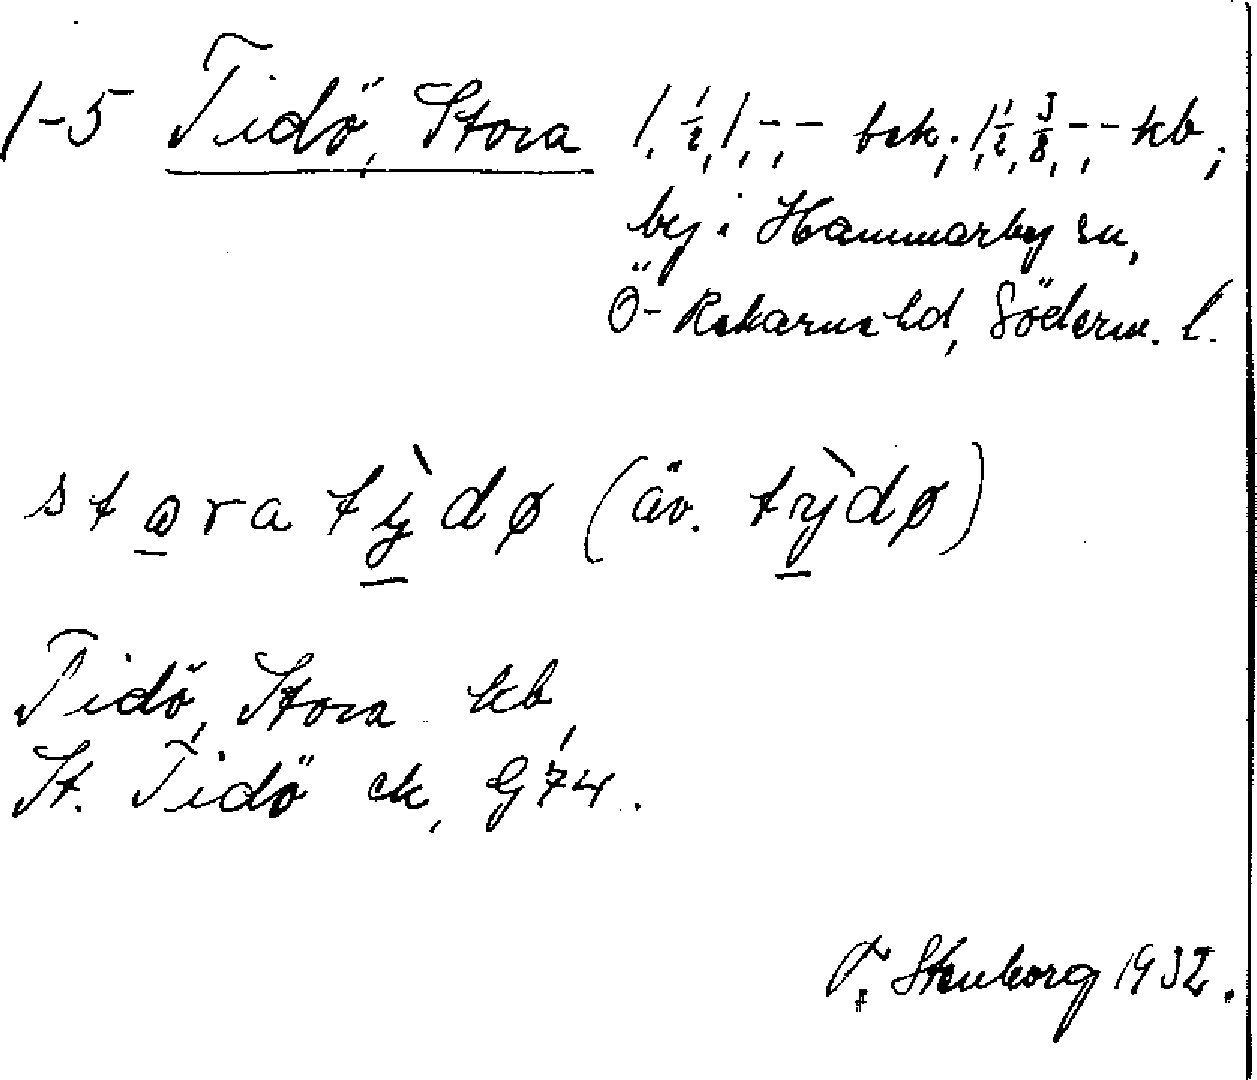 1-5 Tidö, Stora 1, 1/2, 1, -, - bsk; 1, 1/2, 3/8, -, - kb,;
by i Hammarby sn,
Ö-Rekarne hd, Söderm. l.
stora tỳdø (äv. tỳdø)
Tidö, Stora kb,
St. Tidö ek, G74.
F. Stenborg 1932.